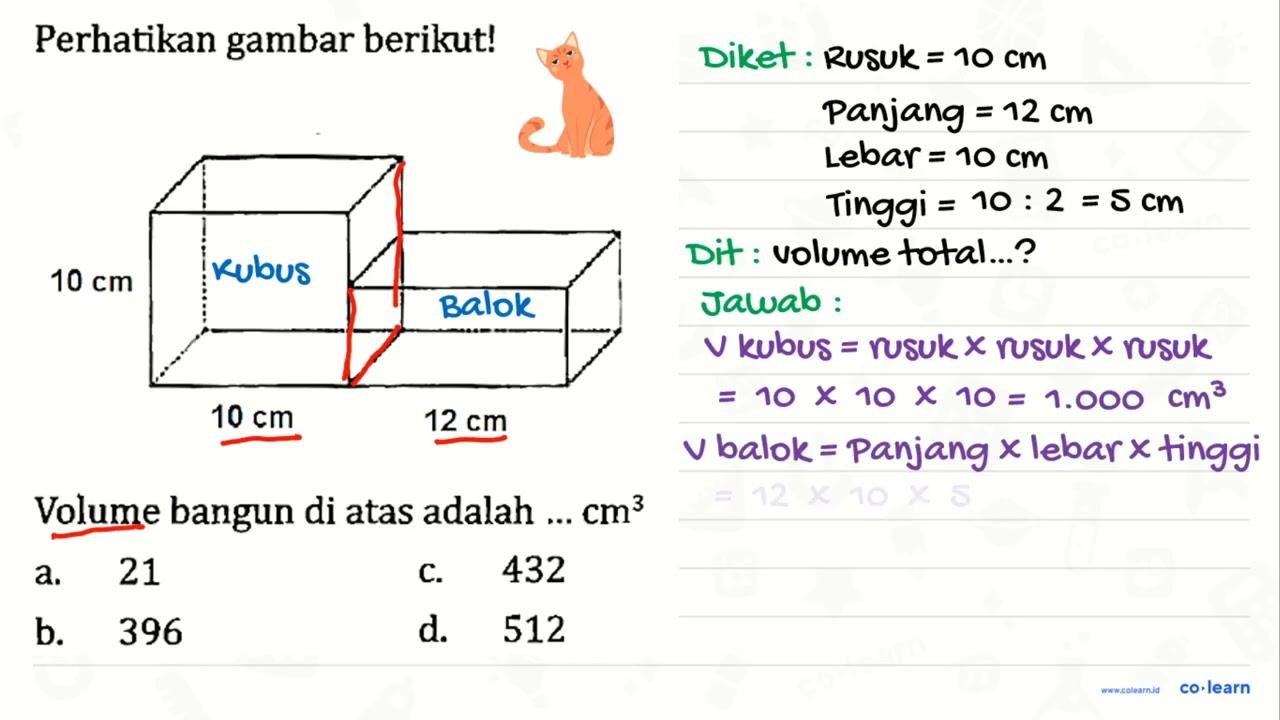 Perhatikan gambar berikut!
10 cm
Kubus
Balok
10 cm
12 cm
Volume bangun di atas adalah ... cm³
a. 21
c. 432
b. 396
d. 512
Diket : Rusuk = 10 cm
Panjang = 12 cm
Lebar = 10 cm
Tinggi = 10 : 2 = 5 cm
Dit : volume total...?
Jawab :
V kubus = rusuk x rusuk x rusuk
= 10 x 10 x 10 = 1.000 cm³
V balok = Panjang x lebar x tinggi
= 12 x 10 x 5
www.colearn.id co·learn